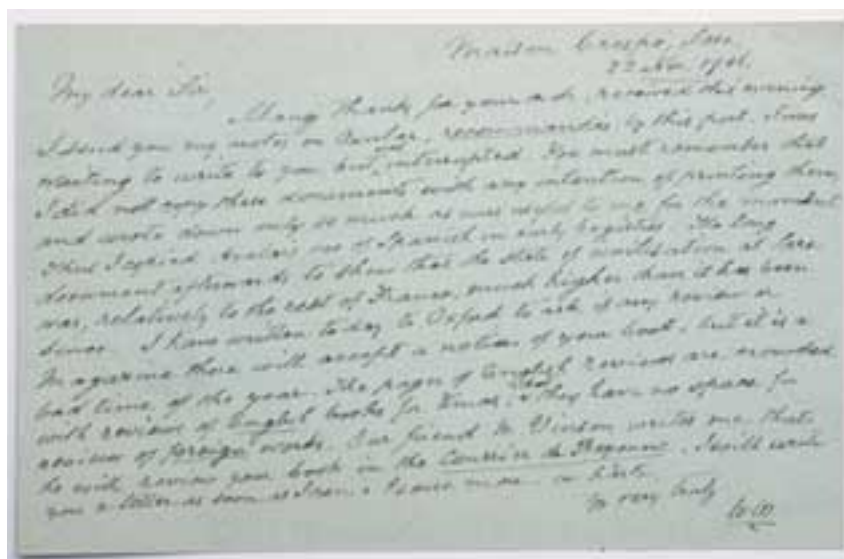 Maison Crespo, Sare
22 Nov.
My dear Sir,
Many thanks for your card, received this evening
I send you my notes on recommandés, by this post. I was
wanting to write to you but interrupted. You must remember that
I did not copy these documents with any intention of printing them,
and wrote down only so much as was useful to me for the moment
Thus I copied use of Spanish in early registers. The long
document afterwards to show that the state of civilisation at Sare
was, relatively to the rest of France, much higher than it has been
since. I have written today to Oxford to ask if any review or
Magazine there will accept a notice of your book, but it is a
bad time, of the year. The pages of English reviews are crowded
with reviews of English books for Xmas, & they have no space for
reviews of foreign works. Our friend M. Vinson writes me, that
he will review your book in the Courrier de Bayonne. I will write
you a letter as soon as I can & in haste
Yr very truly
W.W.